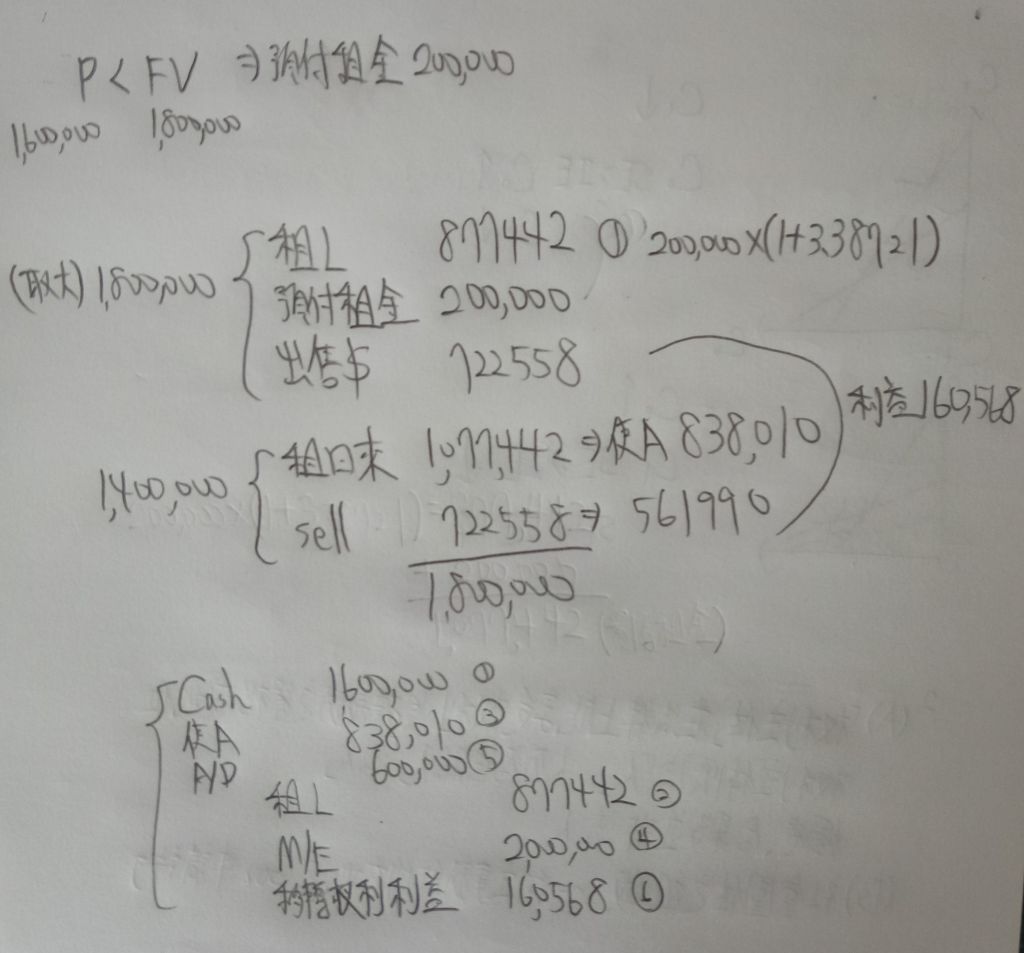 P < FV ⇒ 預付租金 200,000
1,600,000 1,800,000
租L 877442 ① 200,000×(1+3.38721)
(取大) 1,800,000 預付租金 200,000
出售$ 722558
利益 160,568
租回來 1,077,442 ⇒ 使A 838,010
1,400,000
sell 722558 ⇒ 561990
1,800,000
Cash 1600,000 ①
使A 838,010 ③
A/D 600,000 ⑤
租L 877442 ②
M/E 2,000,000 ④
移轉權利利益 160,568 ⑥